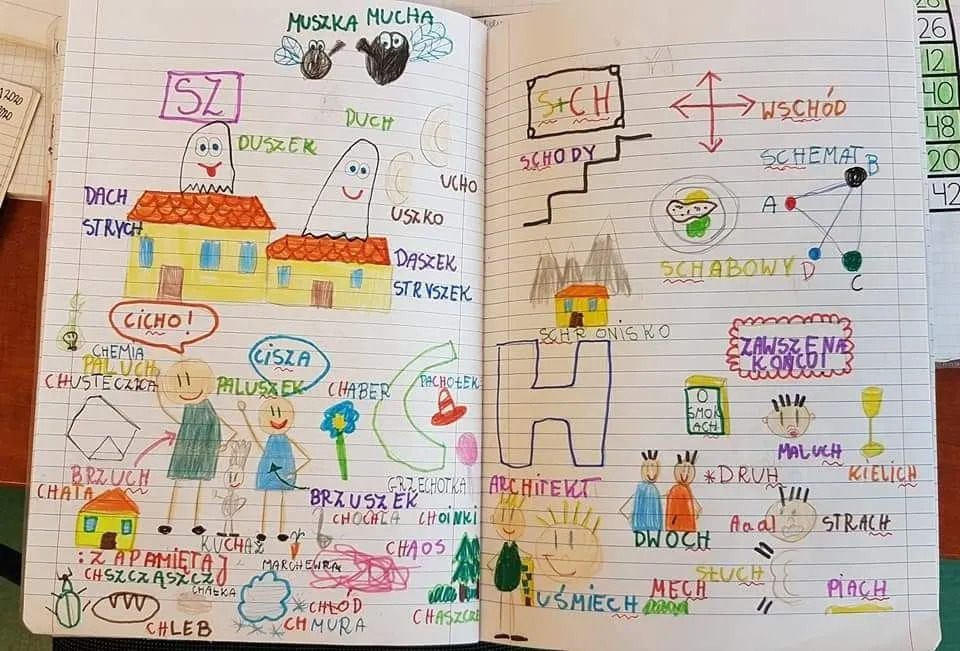 MUSZKA MUCHA
SZ
DUCH
DUSZEK
UCHO
USZKO
DACH
STRYCH
DASZEK
STRYSZEK
CICHO!
CISZA
CHEMIA
PALUCH
CHUSTECZKA
PALUSZEK
CHABER
PACHOŁEK
C
BRZUCH
GRZECHOTKA
CHATA
BRZUSZEK
CHOCHLA
CHOINKI
KUCHAZ
CHAOS
:ZAPAMIĘTAJ
MARCHEWKA
CHSZCZĄSZCZ
CHAŁKA
CHŁÓD
CHLEB
CHMURA
CHASZCZE
S+CH
WSCHÓD
SCHODY
SCHEMAT
B
A
SCHABOWY
D
C
SCHRONISKO
ZAWSZE NA
KOŃCU!
H
O
SMOK
ACH
MALUCH
KIELICH
ARCHITEKT
*DRUH
Aaa!
STRACH
DWÓCH
SŁUCH
UŚMIECH
MECH
PIACH
2020
26
12
40
48
20
42